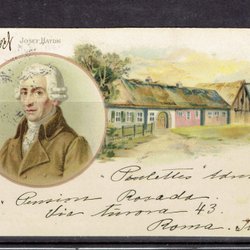 JOSEF HAYDN
"Poulettes"
"Pension Rosada
Via aurora 43.
Roma.